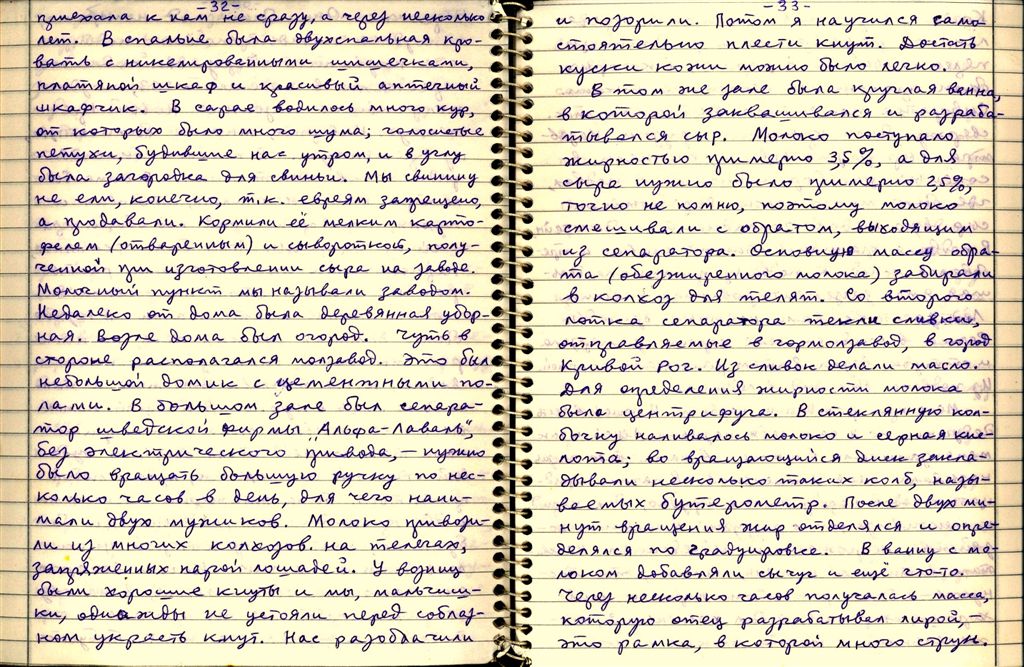 -32-
приехала к нам не сразу, а через несколько
лет. В спальне была двухспальная кро-
вать с никелированными шишечками,
платяной шкаф и красивый аптечный
шкафчик. В сарае водилось много кур,
от которых было много шума; голосистые
петухи, будившие нас утром, и в углу
была загородка для свиньи. Мы свинину
не ели, конечно, т.к. евреям запрещено,
а продавали. Кормили её мелким карто-
фелем (отваренным) и сывороткой, полу-
ченной при изготовлении сыра на заводе.
Молочный пункт мы называли заводом.
Недалеко от дома была деревянная убор-
ная. Возле дома был огород. Чуть в
стороне располагался молзавод. Это был
небольшой домик с цементными по-
лами. В большом зале был сепара-
тор шведской фирмы „Альфа-Лаваль",
без электрического привода, – нужно
было вращать большую ручку по нес-
колько часов в день, для чего нани-
мали двух мужиков. Молоко привози-
ли из многих колхозов на телегах,
запряженных парой лошадей. У возниц
были хорошие кнуты и мы, мальчиш-
ки, однажды не устояли перед соблаз-
ном украсть кнут. Нас разоблачили
-33-
и позорили. Потом я научился само-
стоятельно плести кнут. Достать
куски кожи можно было легко.
В том же зале была круглая ванна,
в которой заквашивался и разраба-
тывался сыр. Молоко поступало
жирностью примерно 3,5%, а для
сыра нужно было примерно 2,5%,
точно не помню, поэтому молоко
смешивали с обратом, выходящим
из сепаратора. Основную массу обра-
та (обезжиренного молока) забирали
в колхоз для телят. Со второго
лотка сепаратора текли сливки,
отправляемые в гормолзавод, в город
Кривой Рог. Из сливок делали масло.
Для определения жирности молока
была центрифуга. В стеклянную кол-
бочку наливалось молоко и серная кис-
лота; во вращающийся диск закла-
дывали несколько таких колб, назы-
ваемых бутерометр. После двух ми-
нут вращения жир отделялся и опре-
делялся по градуировке. В ванну с мо-
локом добавляли сычуг и ещё что-то.
Через несколько часов получалась масса,
которую отец разрабатывал лирой, –
это рамка, в которой много струн.